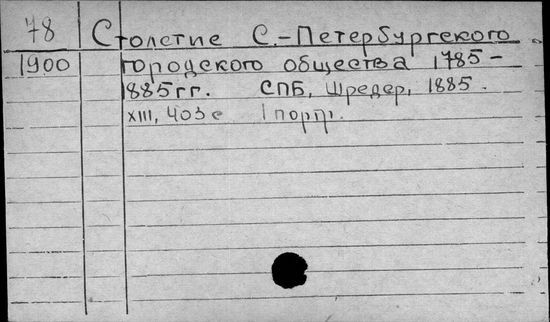 78 Столетие С.-Петербургского
1900 городского общества 1785-
885гг. СПБ, Шредер, 1885.
XIII, 403 с 1 портр.